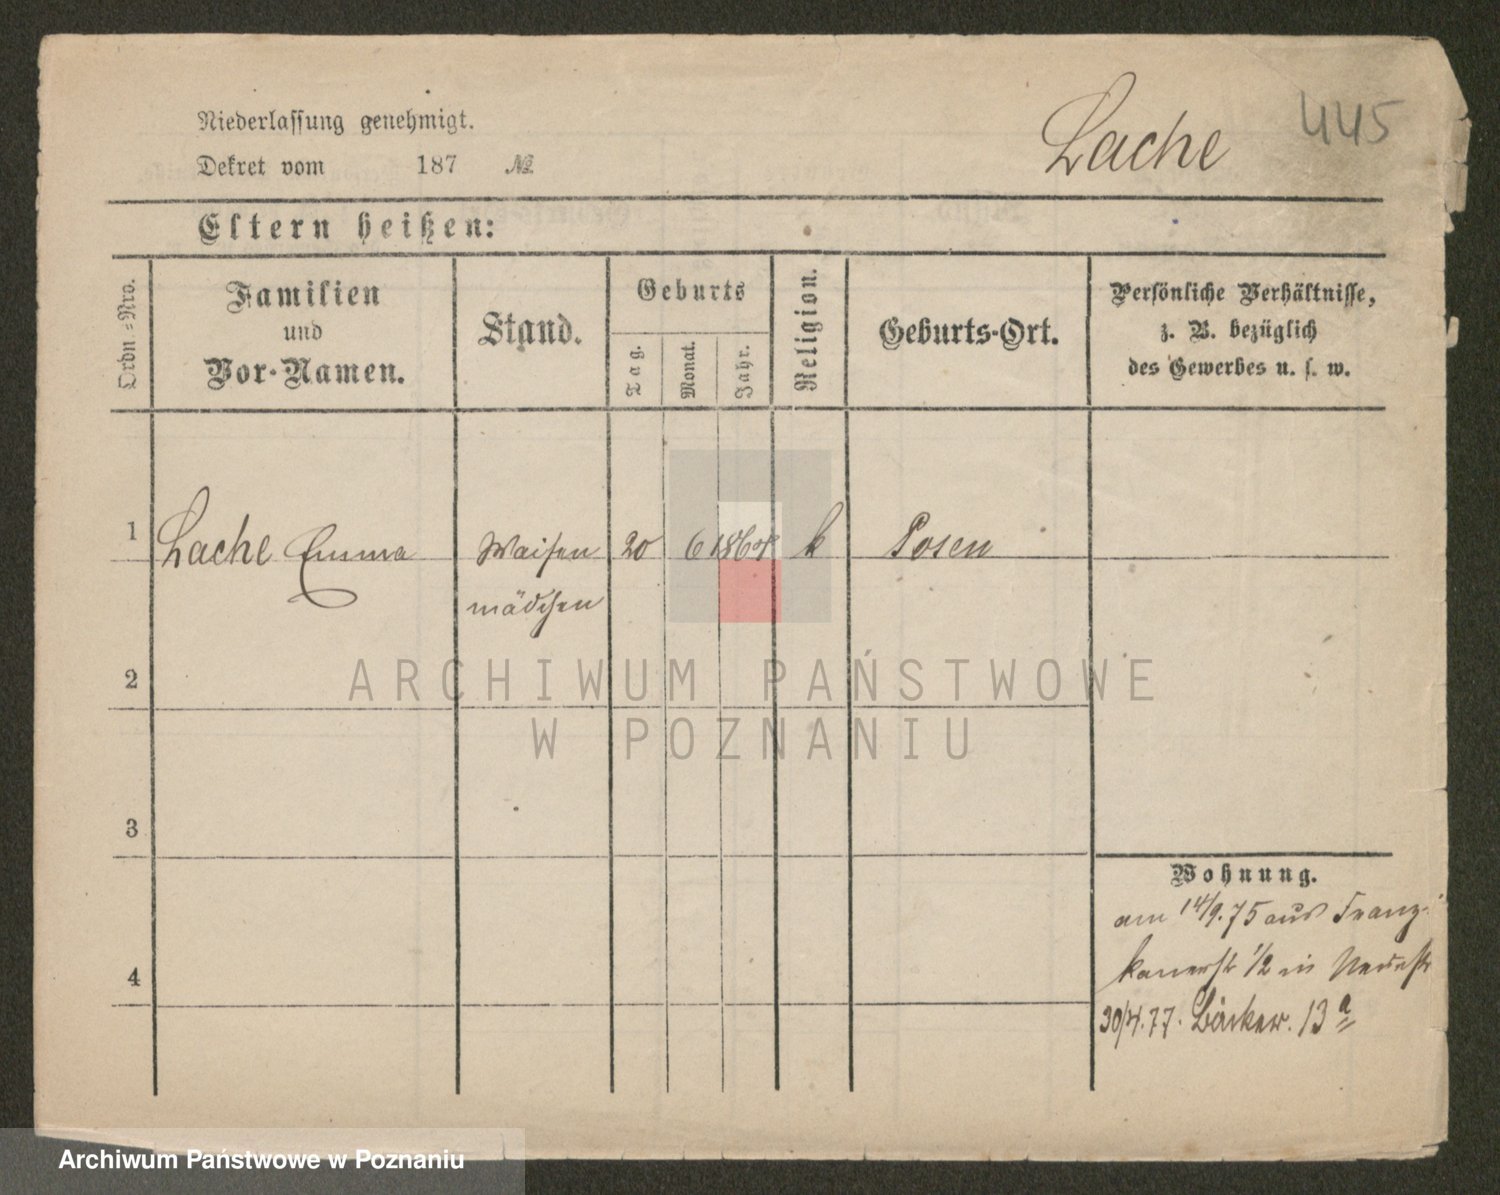 Niederlassung genehmigt.
Dekret vom 187 №
Lache
445
Eltern heißen:
Ordn.=Nro.
Familien
und
Vor-Namen.
Stand.
Geburts
Tag.
Monat.
Jahr.
Religion.
Geburts-Ort.
Persönliche Verhältnisse,
z. B. bezüglich
des Gewerbes u. s. w.
1 Lache Emma Waisen 20 6 k Posen
mädchen
2
3
4
ARCHIWUM PAŃSTWOWE
W POZNANIU
Wohnung.
am 14/9.75 aus Franzi
kanerstr 1/2 in Neuestr
30/4.77. Bäcker. 13 a
Archiwum Państwowe w Poznaniu